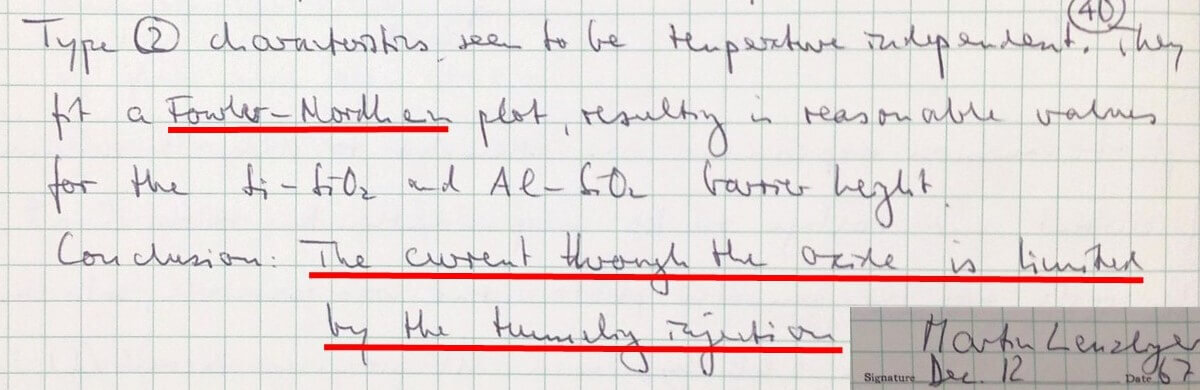 (40)
Type (2) characteristics seem to be temperature independent. They
fit a Fowler-Nordheim plot, resulting in reasonable values
for the Si-SiO2 and Al-SiO2 barrier height.
Conclusion: The current through the oxide is limited
by the tunneling injection
Martin Lenzlinger
Signature Dec. 12 Date 67